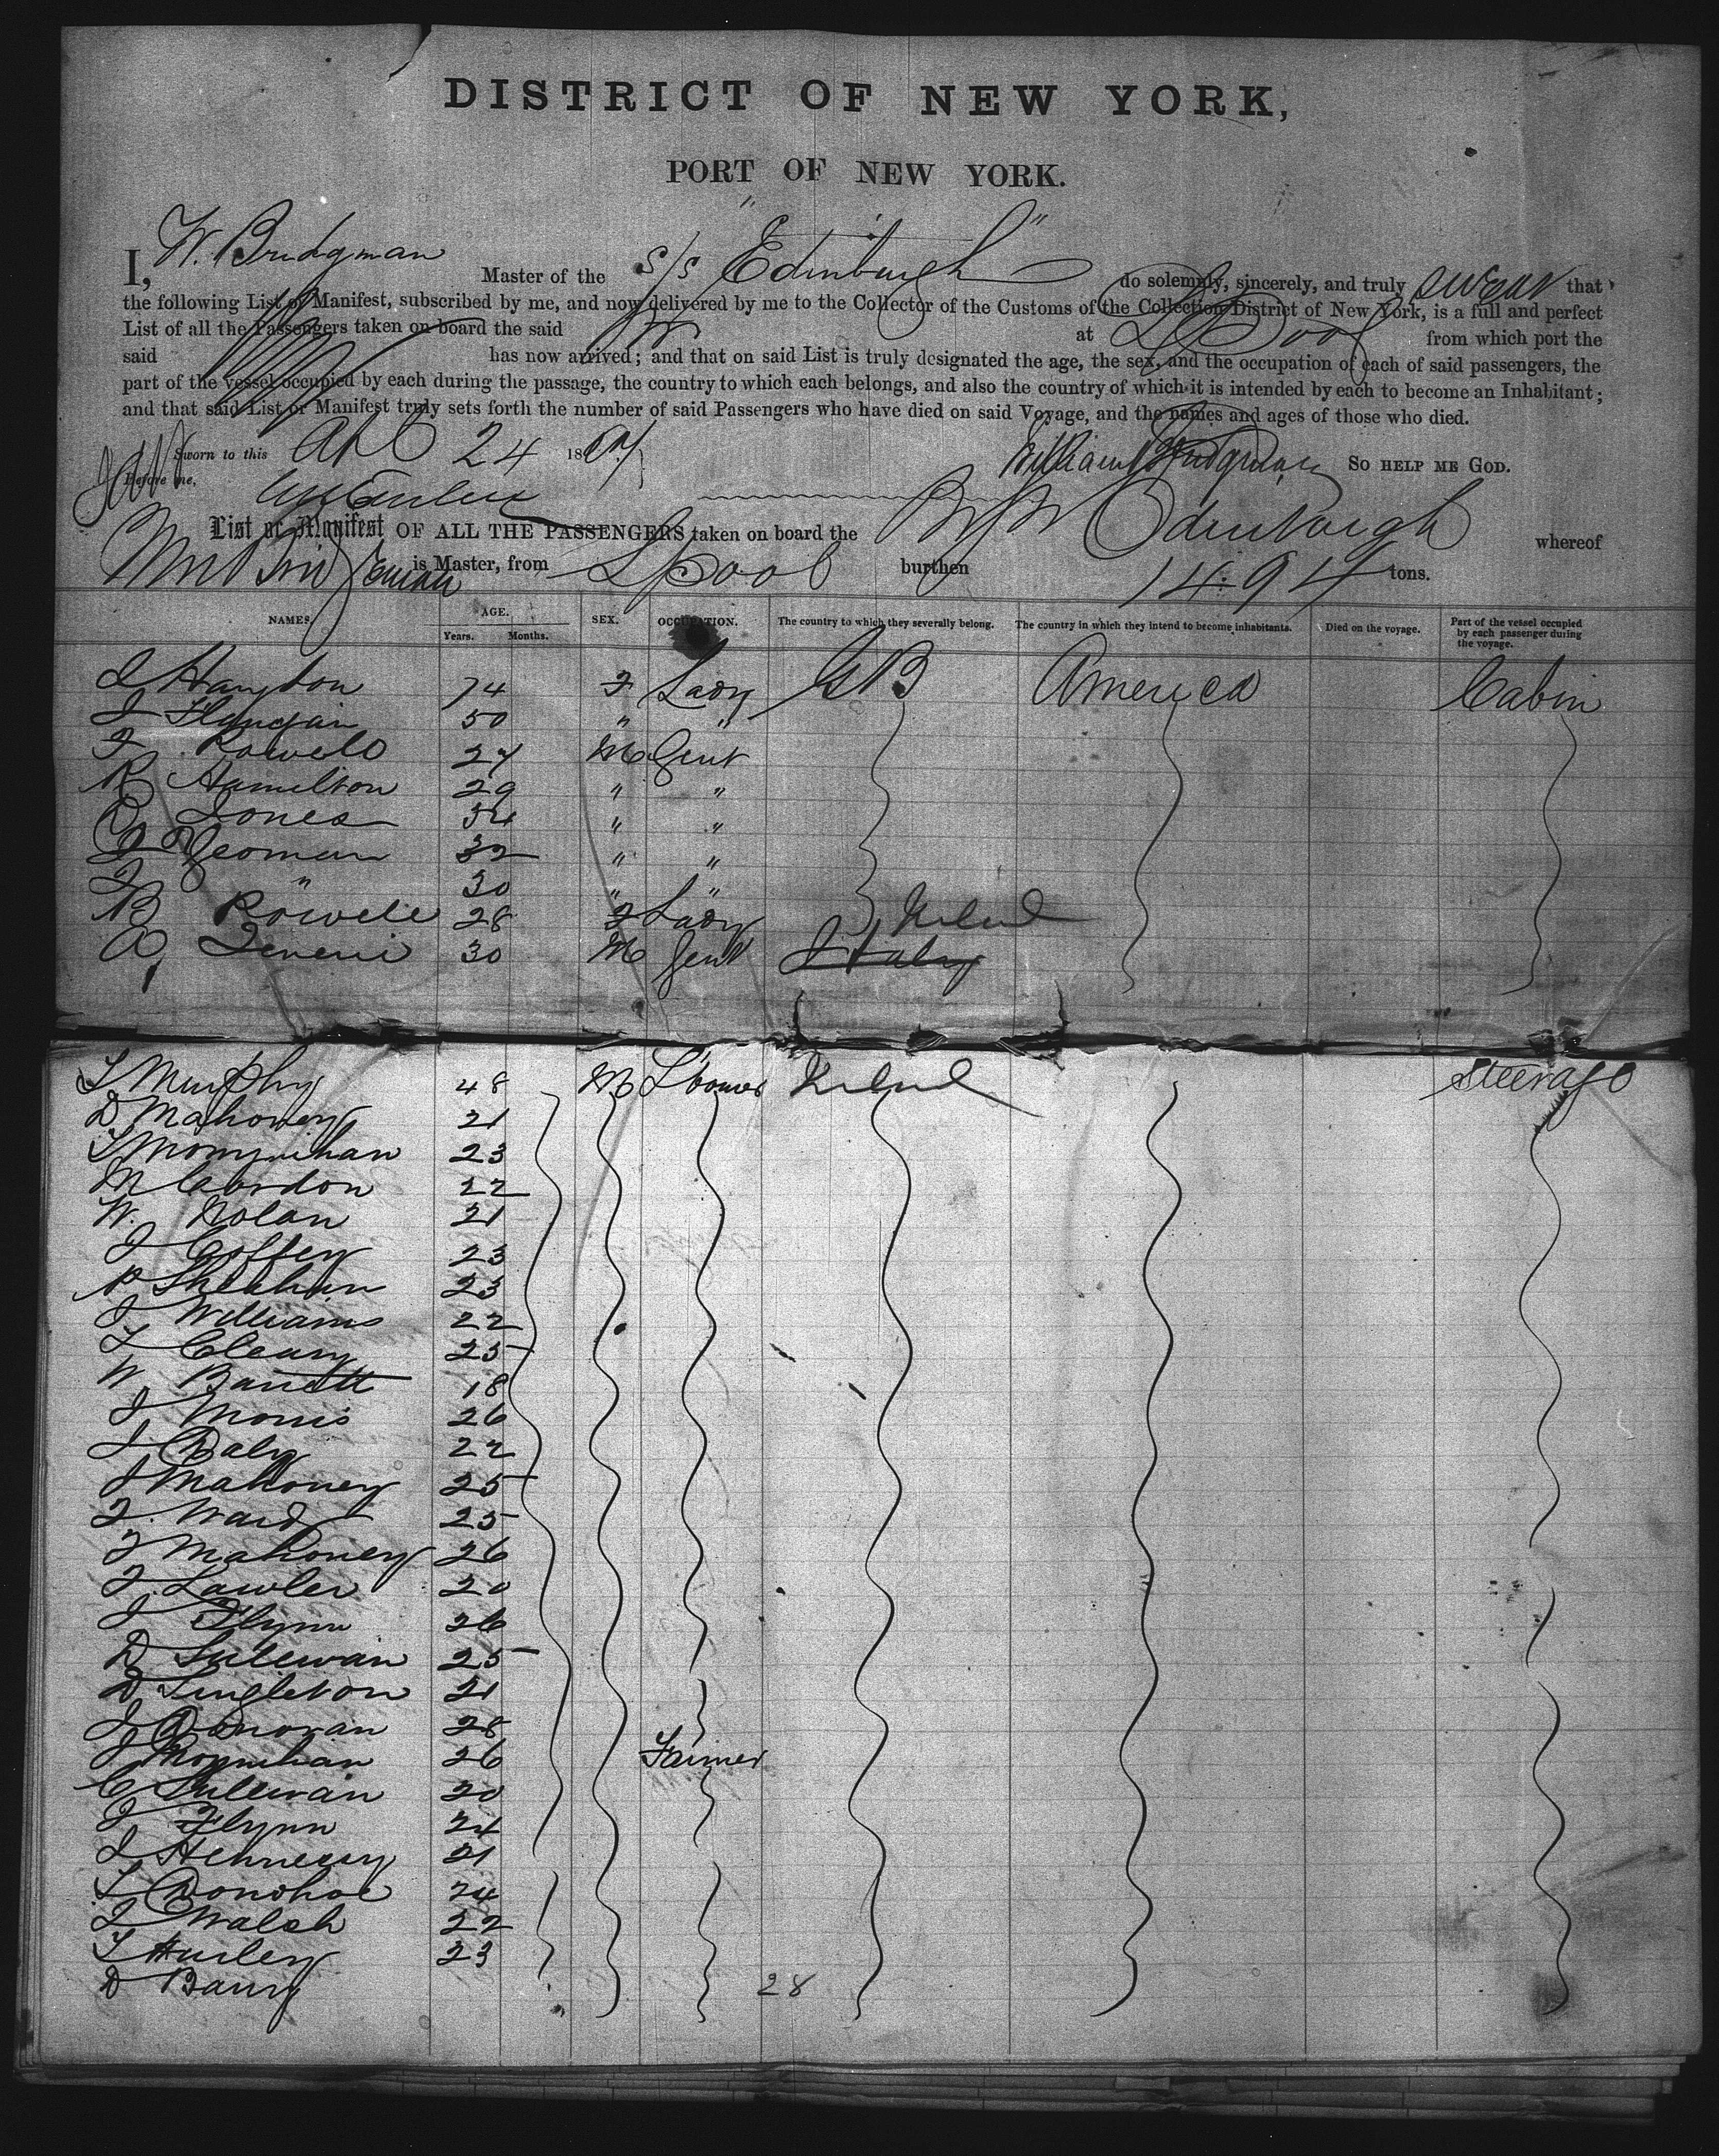 DISTRICT OF NEW YORK,
PORT OF NEW YORK.
I, W. Bridgman Master of the S/S "Edinburgh" do solemnly, sincerely, and truly swear that
the following List or Manifest, subscribed by me, and now delivered by me to the Collector of the Customs of the Collection District of New York, is a full and perfect
List of all the Passengers taken on board the said at LPool from which port the
said has now arrived; and that on said List is truly designated the age, the sex, and the occupation of each of said passengers, the
part of the vessel occupied by each during the passage, the country to which each belongs, and also the country of which it is intended by each to become an Inhabitant;
and that said List or Manifest truly sets forth the number of said Passengers who have died on said Voyage, and the names and ages of those who died.
Sworn to this Apl 24 18 William Bridgman SO HELP ME GOD.
Before me,
List or Manifest OF ALL THE PASSENGERS taken on board the Edinburgh whereof
Wm Bridgeman is Master, from LPool burthen 1494 tons.
NAMES. AGE. Years. Months. SEX. OCCUPATION. The country to which they severally belong. The country in which they intend to become inhabitants. Died on the voyage. Part of the vessel occupied by each passenger during the voyage.
74 F Lady GB America Cabin
J Flanagan 50 " "
F Powell 27 M Gent
R Hamilton 29 " "
Jones 34 " "
J Yeoman 32 " "
J " 30 " "
B Powell 28 F Lady Irelnd
A 30 M Gent Italy
T Murphy 48 M Lbourer Irelnd Steerage
D Mahoney 21
T Moynihan 23
M Condon 22
W. Nolan 21
J Coffey 23
P Sheahan 23
J Williams 22
T Cleary 25
W Barrett 18
J Morris 26
J Daly 22
J Mahoney 25
F. Ward 25
F Mahoney 26
F. Lawler 20
J Flynn 26
D Sullivan 25
D Singleton 21
J Donovan 28
J Moynihan 26 Farmer
C Sullivan 20
J Flynn 24
J Hennessy 21
T Donohoe 24
J Walsh 22
T Hurley 23
D Barry 28